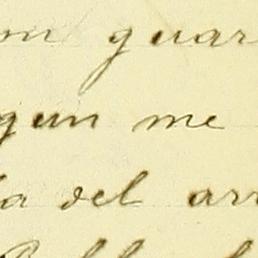 m guar
gun me
ia del arr